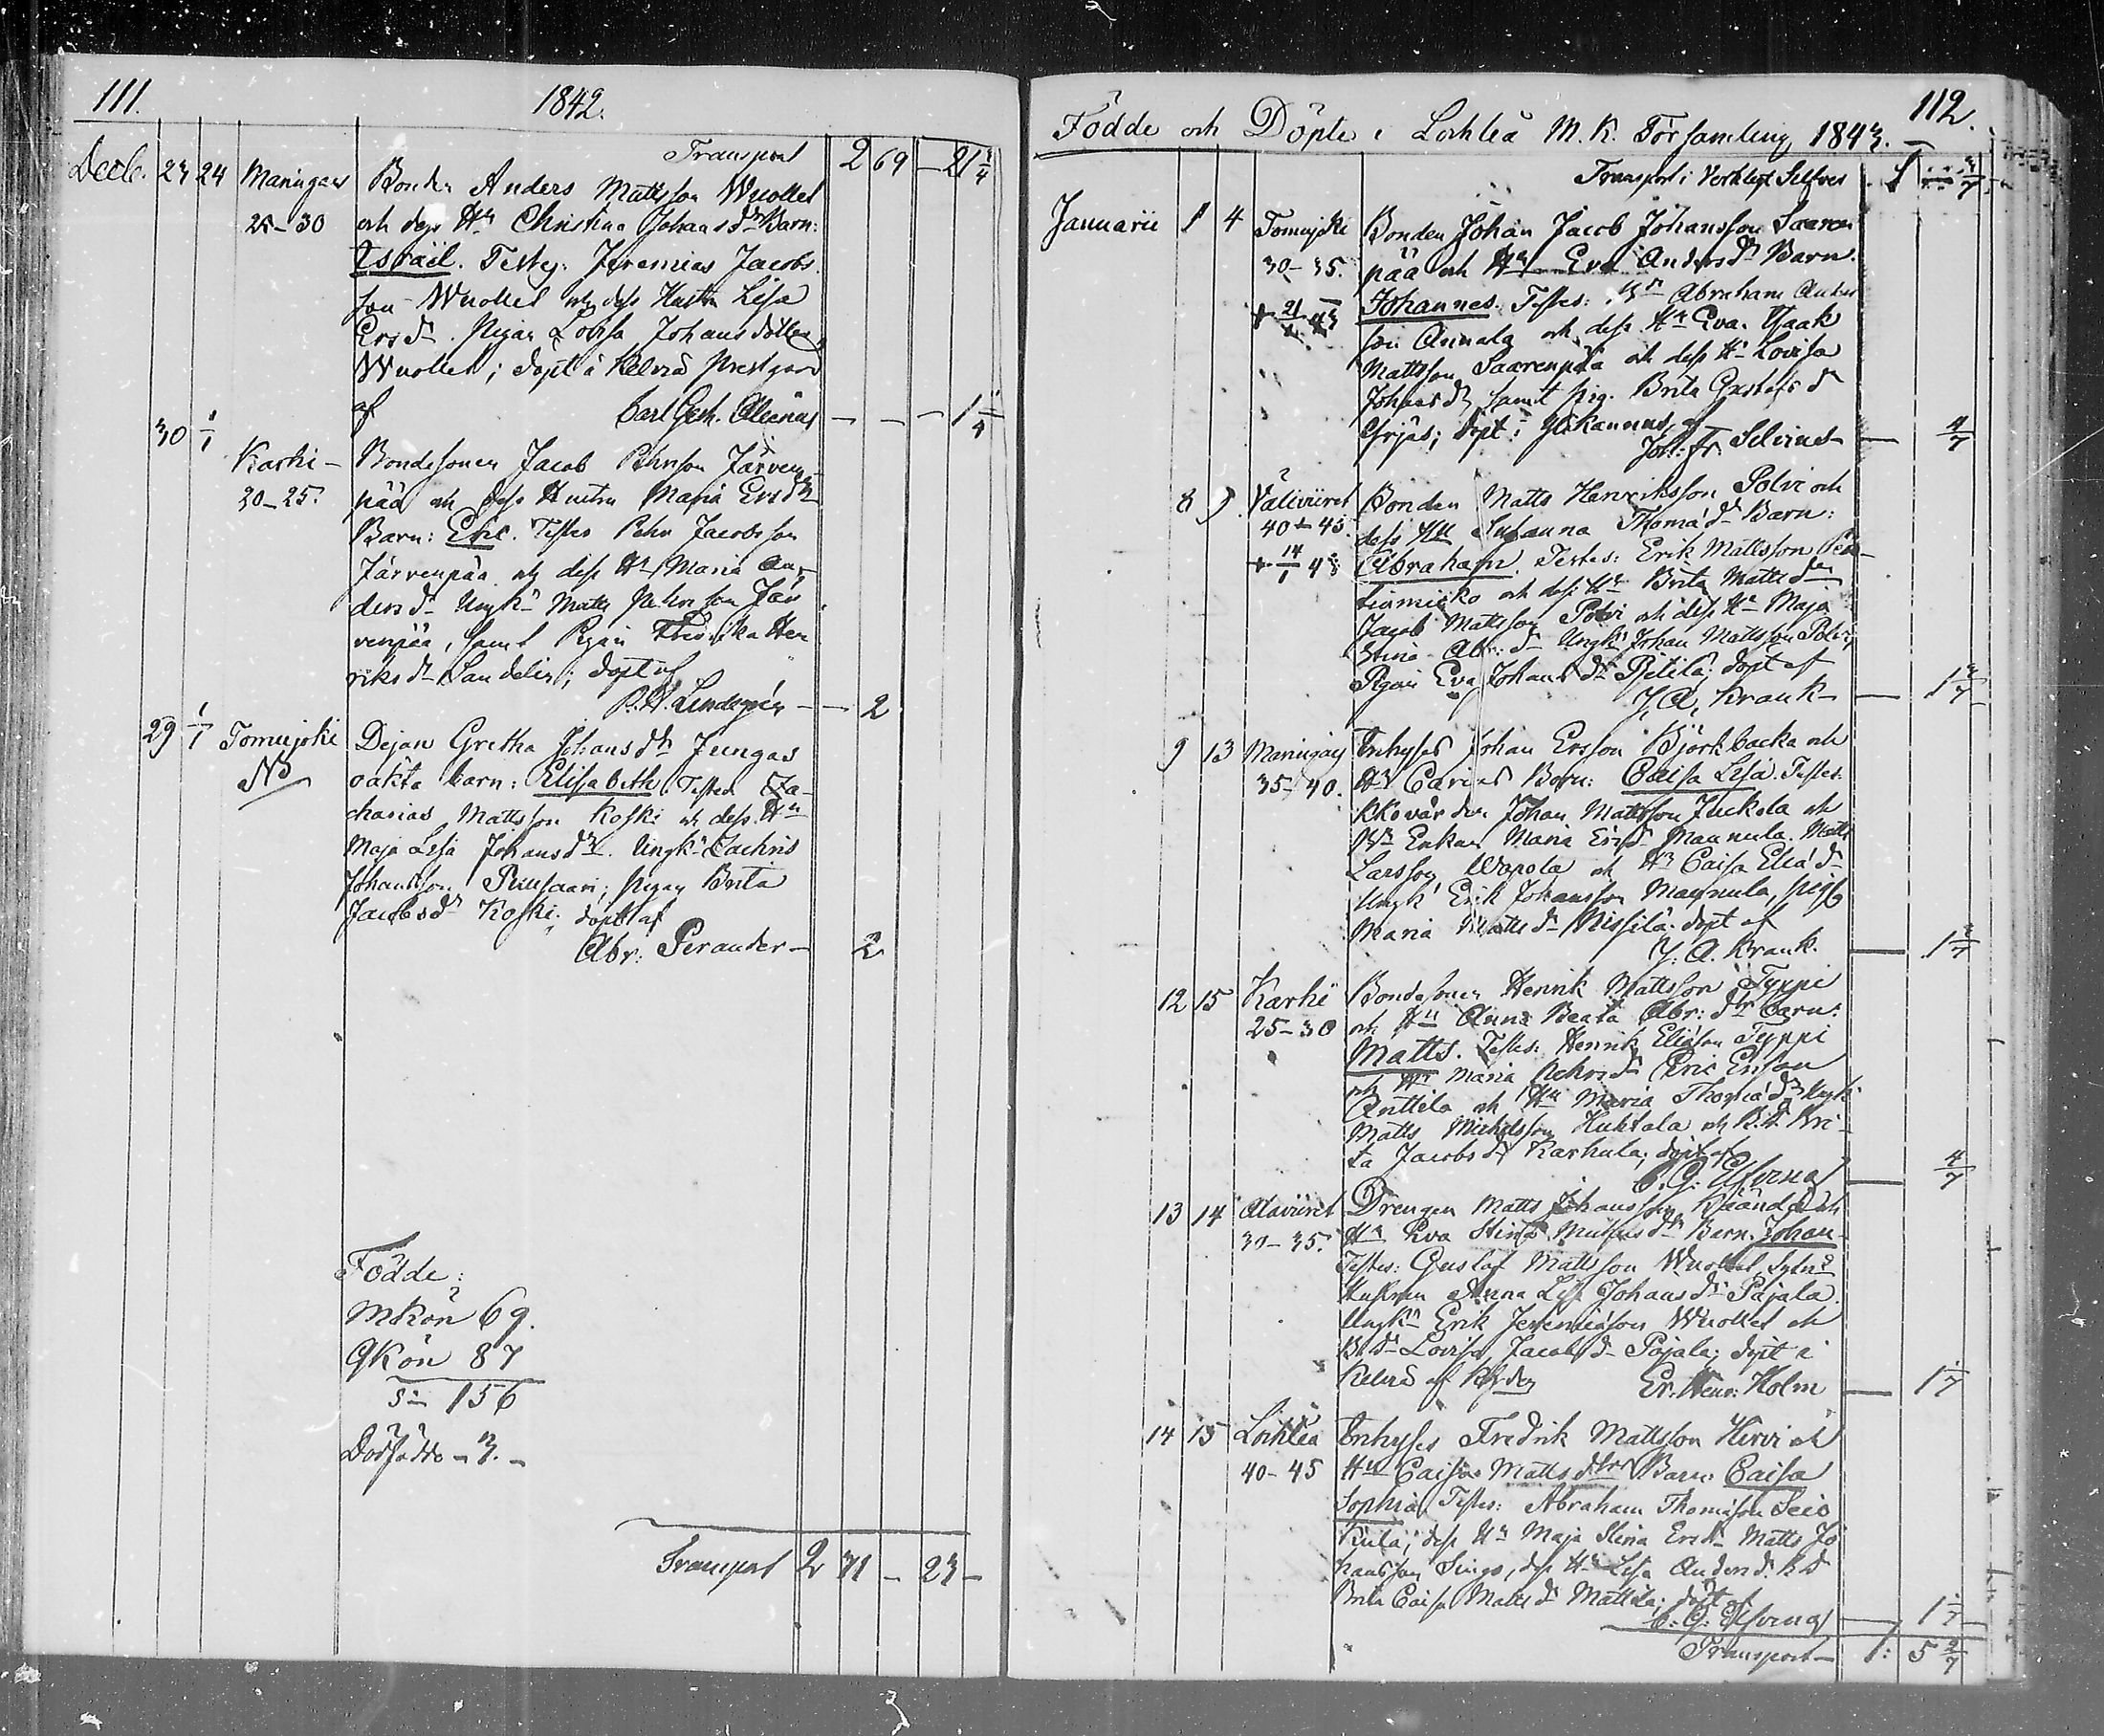 111.
1842.
Transport 2 69 — 21 3/4
Decb. 23 24 Maringais Bonden Anders Mattsson Wuollet
25–30 och dess Hu Christina Johansdr Barn:
Israël. Testes: Jeremias Jacobs
son Wuollet och dess Hustru Lisa
Ersdr. Pigan Lovisa Johansdotter
Wuollet; döpt i Kelviå Prestgård
af Carl Gust. — — — 1 1/4
30 1/1 Karhi – Bondesonen Jacob Pehrsson Järven-
20–25. pää och dess Hustru Maria Ersdr
Barn: Eric. Testes Pehr Jacobsson
Järvenpää och dess Hu Maria An-
dersdr Ungk. Matts Pehrsson Jär
venpää, samt Pigan Fredrika Hen
riksdr Sandelin; döpt af
— — 2
29 1/1 Tomujoki Dejan Gretha Johansdr Jungas
No oäkta barn: Elisabeth. Testes Za-
charias Mattsson Koski och dess Hu
Maja Lisa Johansdr. Ungk. Zachris
Johansson; Pigan Brita
Jacobsdr Koski; döpt af
Abr: Perander — 2
Födde:
MKön 69.
QKön 87
Sa 156
Dödfödde – 3. –
Transport 2 71 — 23 —
112.
Födde och Döpte i Lochteå M. K. Församling 1843.
Transport i Verkligt Silfver
Januarii 1 4 Tomujoki Bonden Johan Jacob Johansson Saaren
30–35. pää och Hu Eva Andersdr Barn.
+ 21/1 43 Johannes. Testes: Bn Abraham Anders
son Annala och dess Hu Eva. Isaak
Mattsson Saarenpää och dess Hu Lovisa
Johansdr, samt pig. Brita Gustafsdr
; döpt i Ylikannus, af
Joh. Fr. Selvius — 4/7
8 9 Väliviiret Bonden Matts Henriksson Polvi och
40–45. dess Hu Susanna Thomædr Barn:
+ 14/1 43 Abraham. Testes: Erik Mattsson
och dess Hu Brita Mattsdr
Jacob Mattsson Polvi och dess Hu Maja
Stina Abr:dr Ungk. Johan Mattsson Polvi,
Pigan Eva Johansdr Pietilä; döpt af
J. A. Krank — 1 2/7
9 13 Maringais Inhyses Johan Ersson Björkbacka och
35–40. Hu Carins Barn: Caisa Lisa. Testes:
Kkovärden Johan Mattsson Juckola och
Enkan Maria Ersdr Mannula. Matts
Larsson Wapola och Hu Caisa Eliædr
Ungk. Erik Johansson Mannula, pig
Maria Mattsdr Nissilä. döpt af
J. A. Krank. — 1 2/7
12 15 Karhi Bondesonen Henrik Mattsson Typpi
25–30 och Hu Anna Beata Abr:dr barn:
Matts. Testes: Henrik Eliæson Typpi
och Hu Maria Pehrsdr Eric Ersson
Anttila och Hu Maria Thomædr Ungk.
Matts Michelsson Huhtala och B.d. Bri-
ta Jacobsdr Karhula; döpt af
C. G. — 4/7
13 14 Alaviiret Drengen Matts Johansson Kääntä och
30–35. Hu Eva Stina Mattsdr Barn. Johan
Testes: Gustaf Mattsson Wuollet,
Hustrun Anna Lisa Johansdr Pajala.
Ungk. Erik Jeremiæson Wuollet och
B.dr Lovisa Jacobsdr Pajala; döpt i
Kelviå af Er. Henr: Holm — 1 1/7
14 15 Lochteå Inhyses Fredrik Mattsson Hirvi och
40–45 Hu Caisa Mattsdr Barn: Caisa
Sophia. Testes: Abraham Thomæson
, dess Hu Maja Stina Ersdr Matts Jo
hansson, dess Hu Lisa Andersdr. B.d
Brita Caisa Mattsdr Mattila; döpt af
C. G. — 1 1/7
Transport — 1: 5 2/7